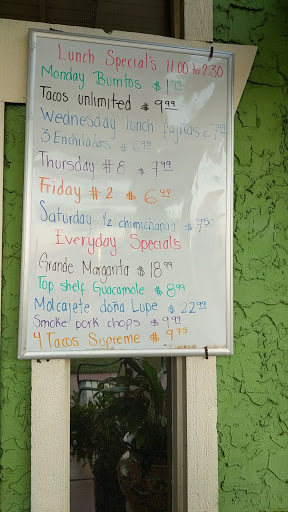 Lunch Special's 11:00 to 2:30
Monday Burritos $1.99
Tacos unlimited $9.99
Wednesday lunch fajitas $7.99
3 Enchiladas $6.95
Thursday #8 $7.99
Friday #2 $6.99
Saturday 1/2 chimichanga $7.50
Everyday Specials
Grande Margarita $18.99
Top shelf Guacamole $8.99
Molcajete doña Lupe $22.99
Smoke pork chops $9.99
4 Tacos Supreme $9.75